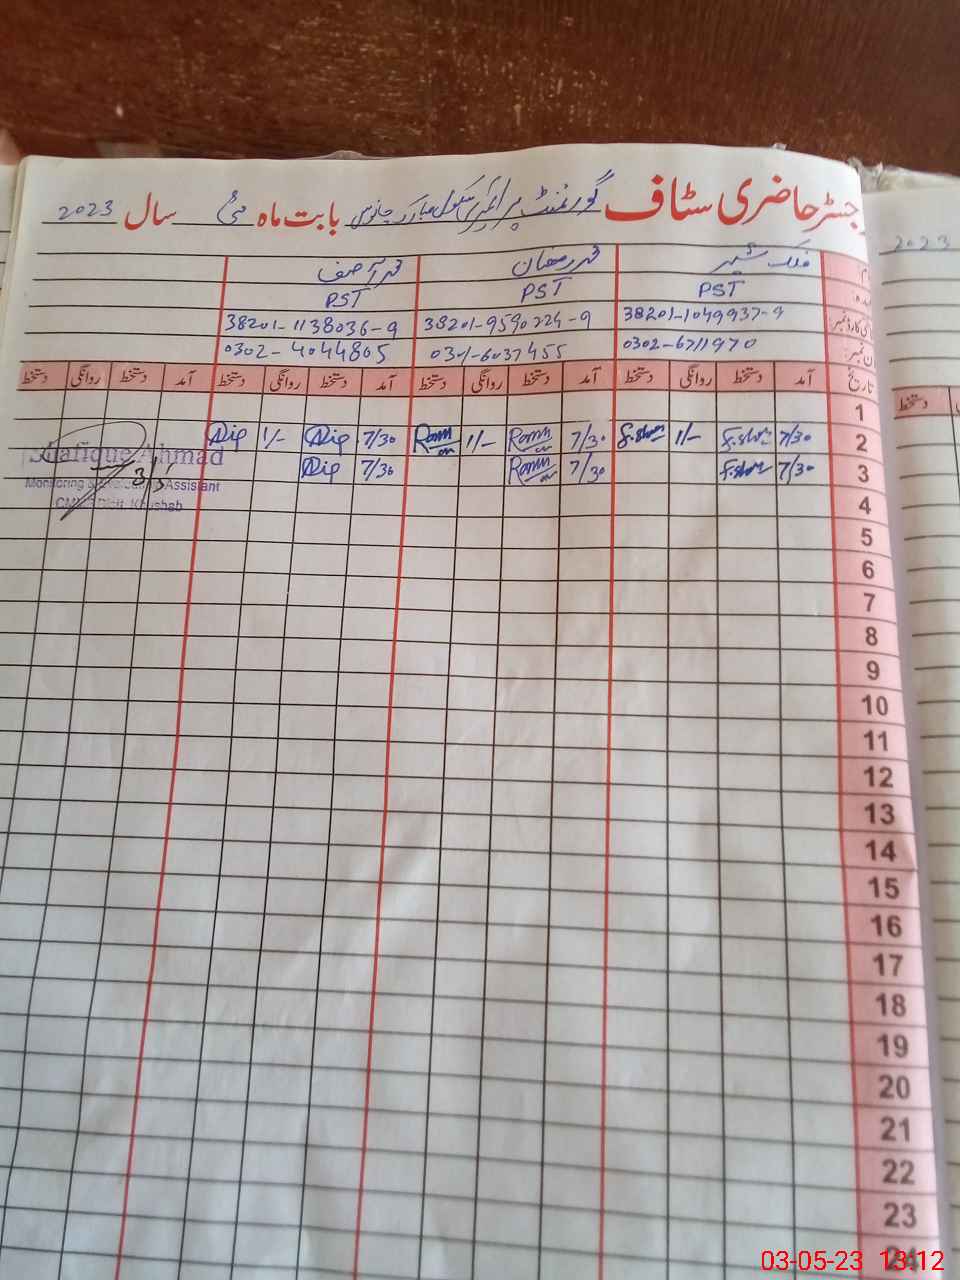 رجسٹر حاضری سٹاف گورنمنٹ پرائمری سکول مبارک بابت ماہ مئی سال 2023
2023
فلک شیر محمد رمضان محمد آصف
PST PST PST
38201-1049937-9 38201-9590224-9 38201-1138036-9
0302-6711970 0301-6037455 0302-4044805
تاریخ آمد دستخط روانگی دستخط آمد دستخط روانگی دستخط آمد دستخط روانگی دستخط آمد دستخط روانگی دستخط
دستخط
1
2 7/30 F.sher 1/- F.sher 7/30 1/- 7/30 1/-
3 7/30 F.sher 7/30 7/30
Shafique Ahmad
3/5
Monitoring Assistant
Khushab
4
5
6
7
8
9
10
11
12
13
14
15
16
17
18
19
20
21
22
23
24
03-05-23 13:12